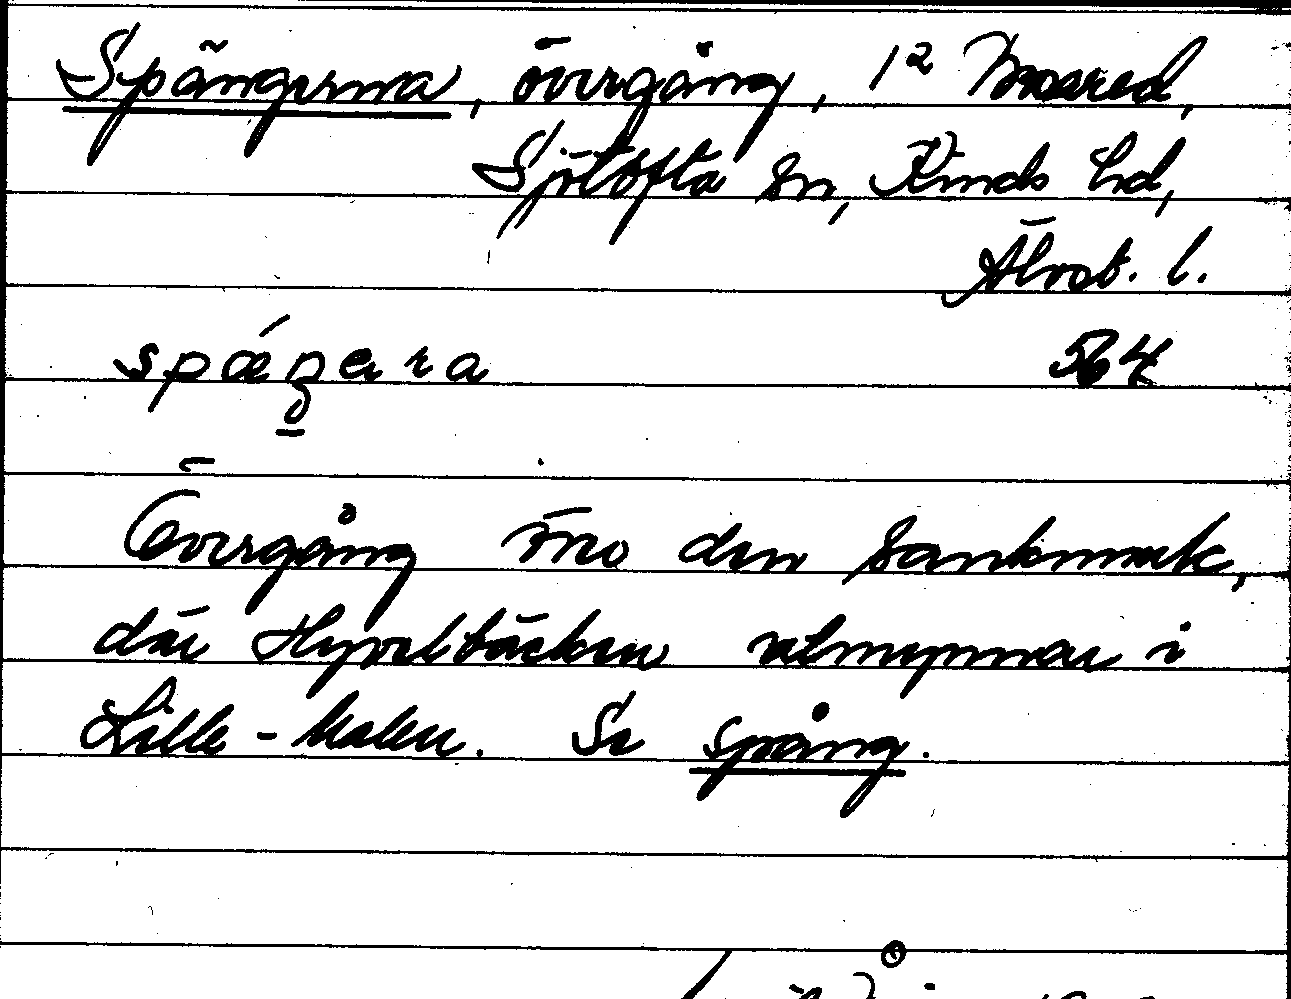 Spängerna, övergång, 1² Mosred,
Sjötofta sn, Kinds hd,
Älvsb. l.
spáŋera 564
Övergång över den sankmark,
där Hyvelbäcken utmynnar i
Lille-Malen. Se spång.